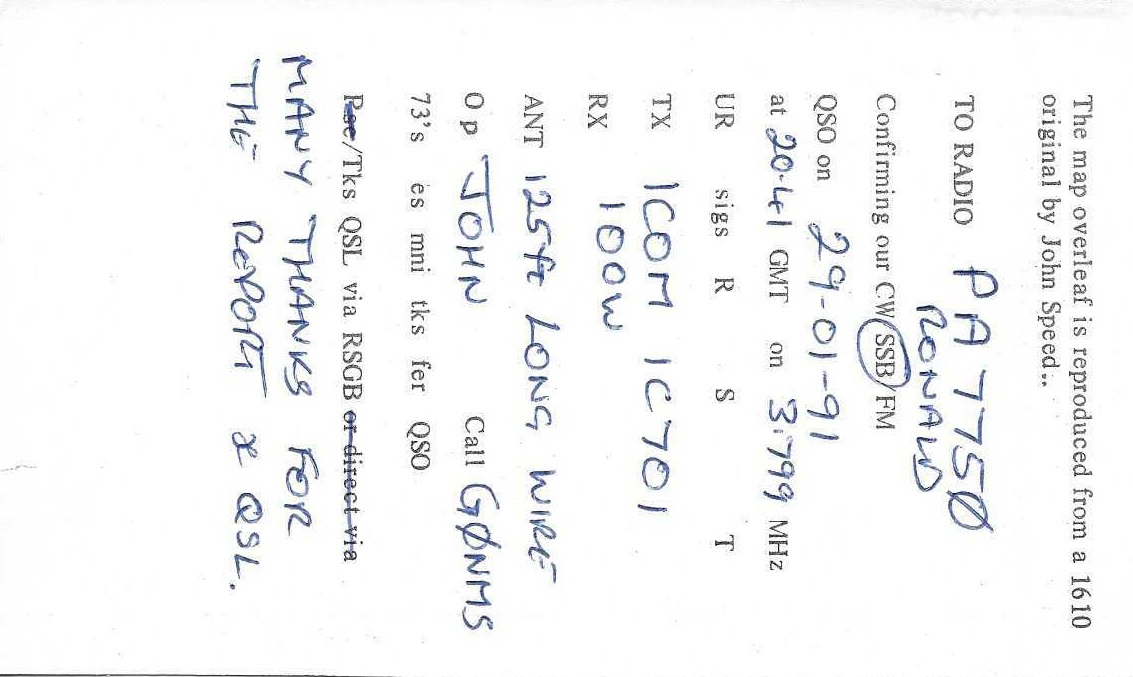 The map overleaf is reproduced from a 1610
original by John Speed..
TO RADIO PA 7750
RONALD
Confirming our CW/SSB/FM
QSO on 29-01-91
at 20.41 GMT on 3.799 MHz
UR sigs R S T
TX ICOM IC701
RX 100W
ANT 125ft LONG WIRE
Op JOHN Call GØNMS
73's es mni tks fer QSO
Pse/Tks QSL via RSGB or direct via
MANY THANKS FOR
THE REPORT & QSL.